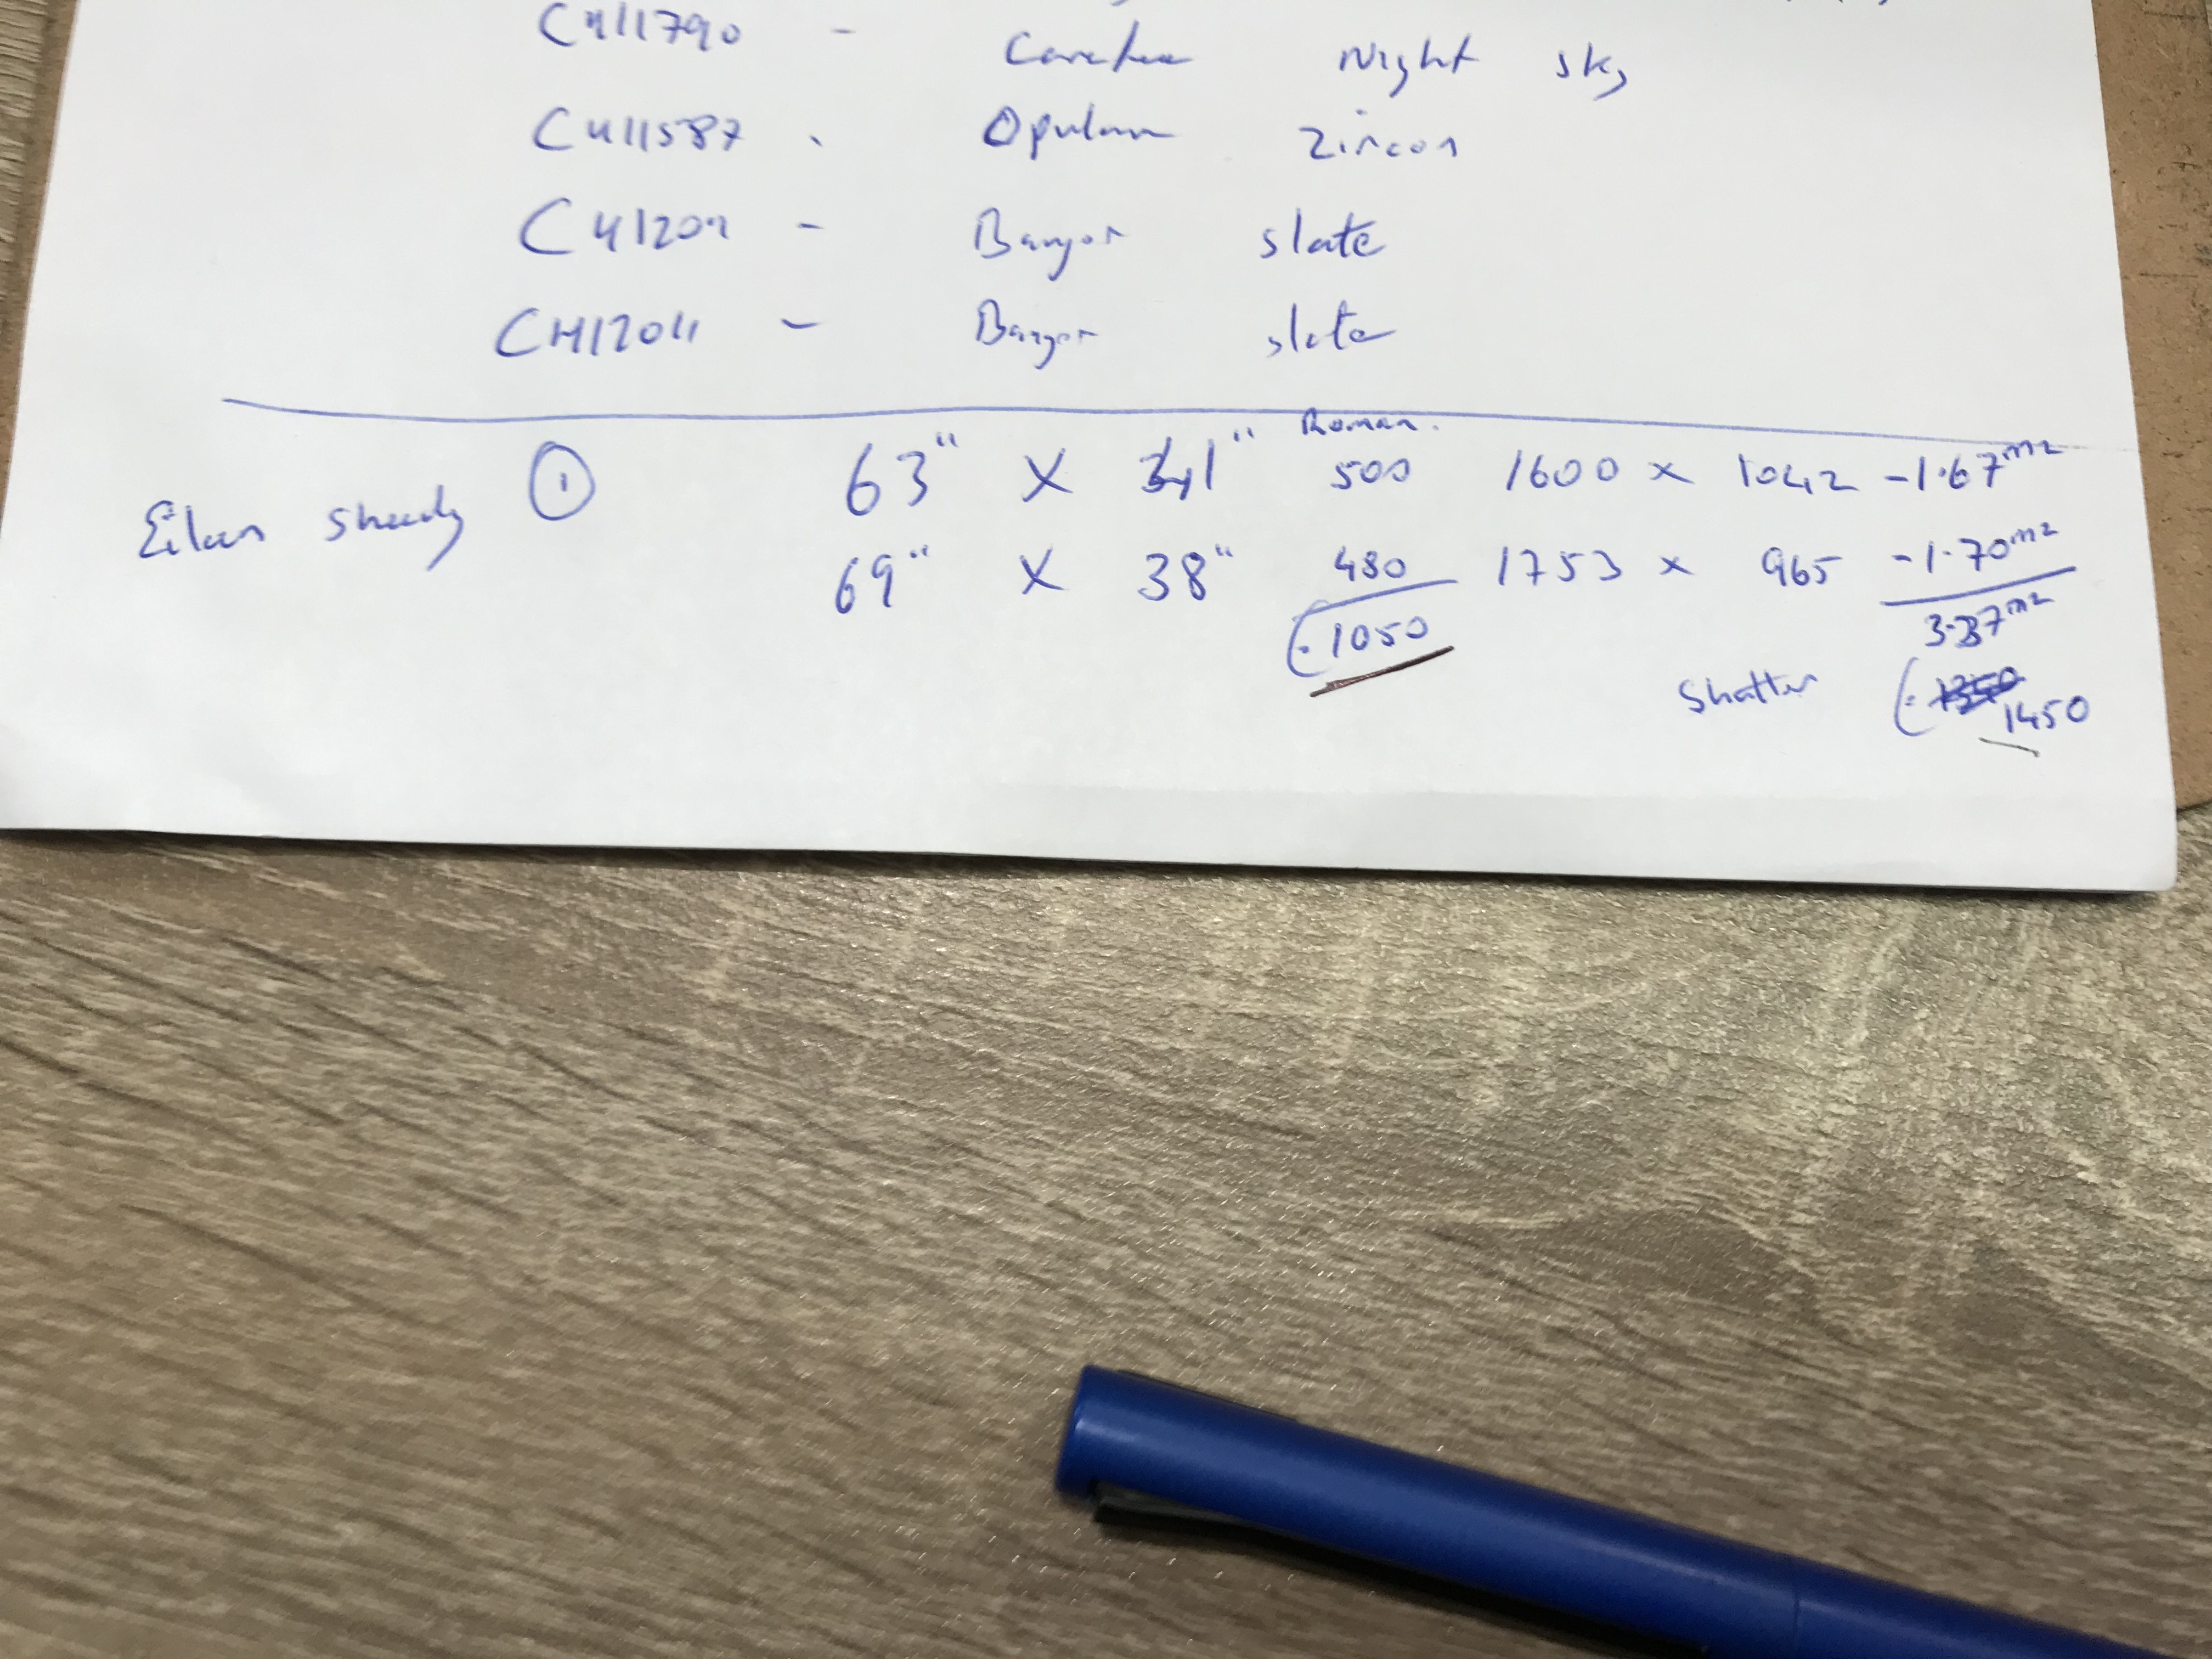 CH11790 - Night sky
CH11587 - Zircon
CH1201 - Bangor slate
CH12011 - Bangor slate
Roman.
① 63" X 41" 500 1600 x 1042 - 1.67m2
69" X 38" 480 1753 x 965 - 1.70m2
1050 3.37m2
Shutter
1450